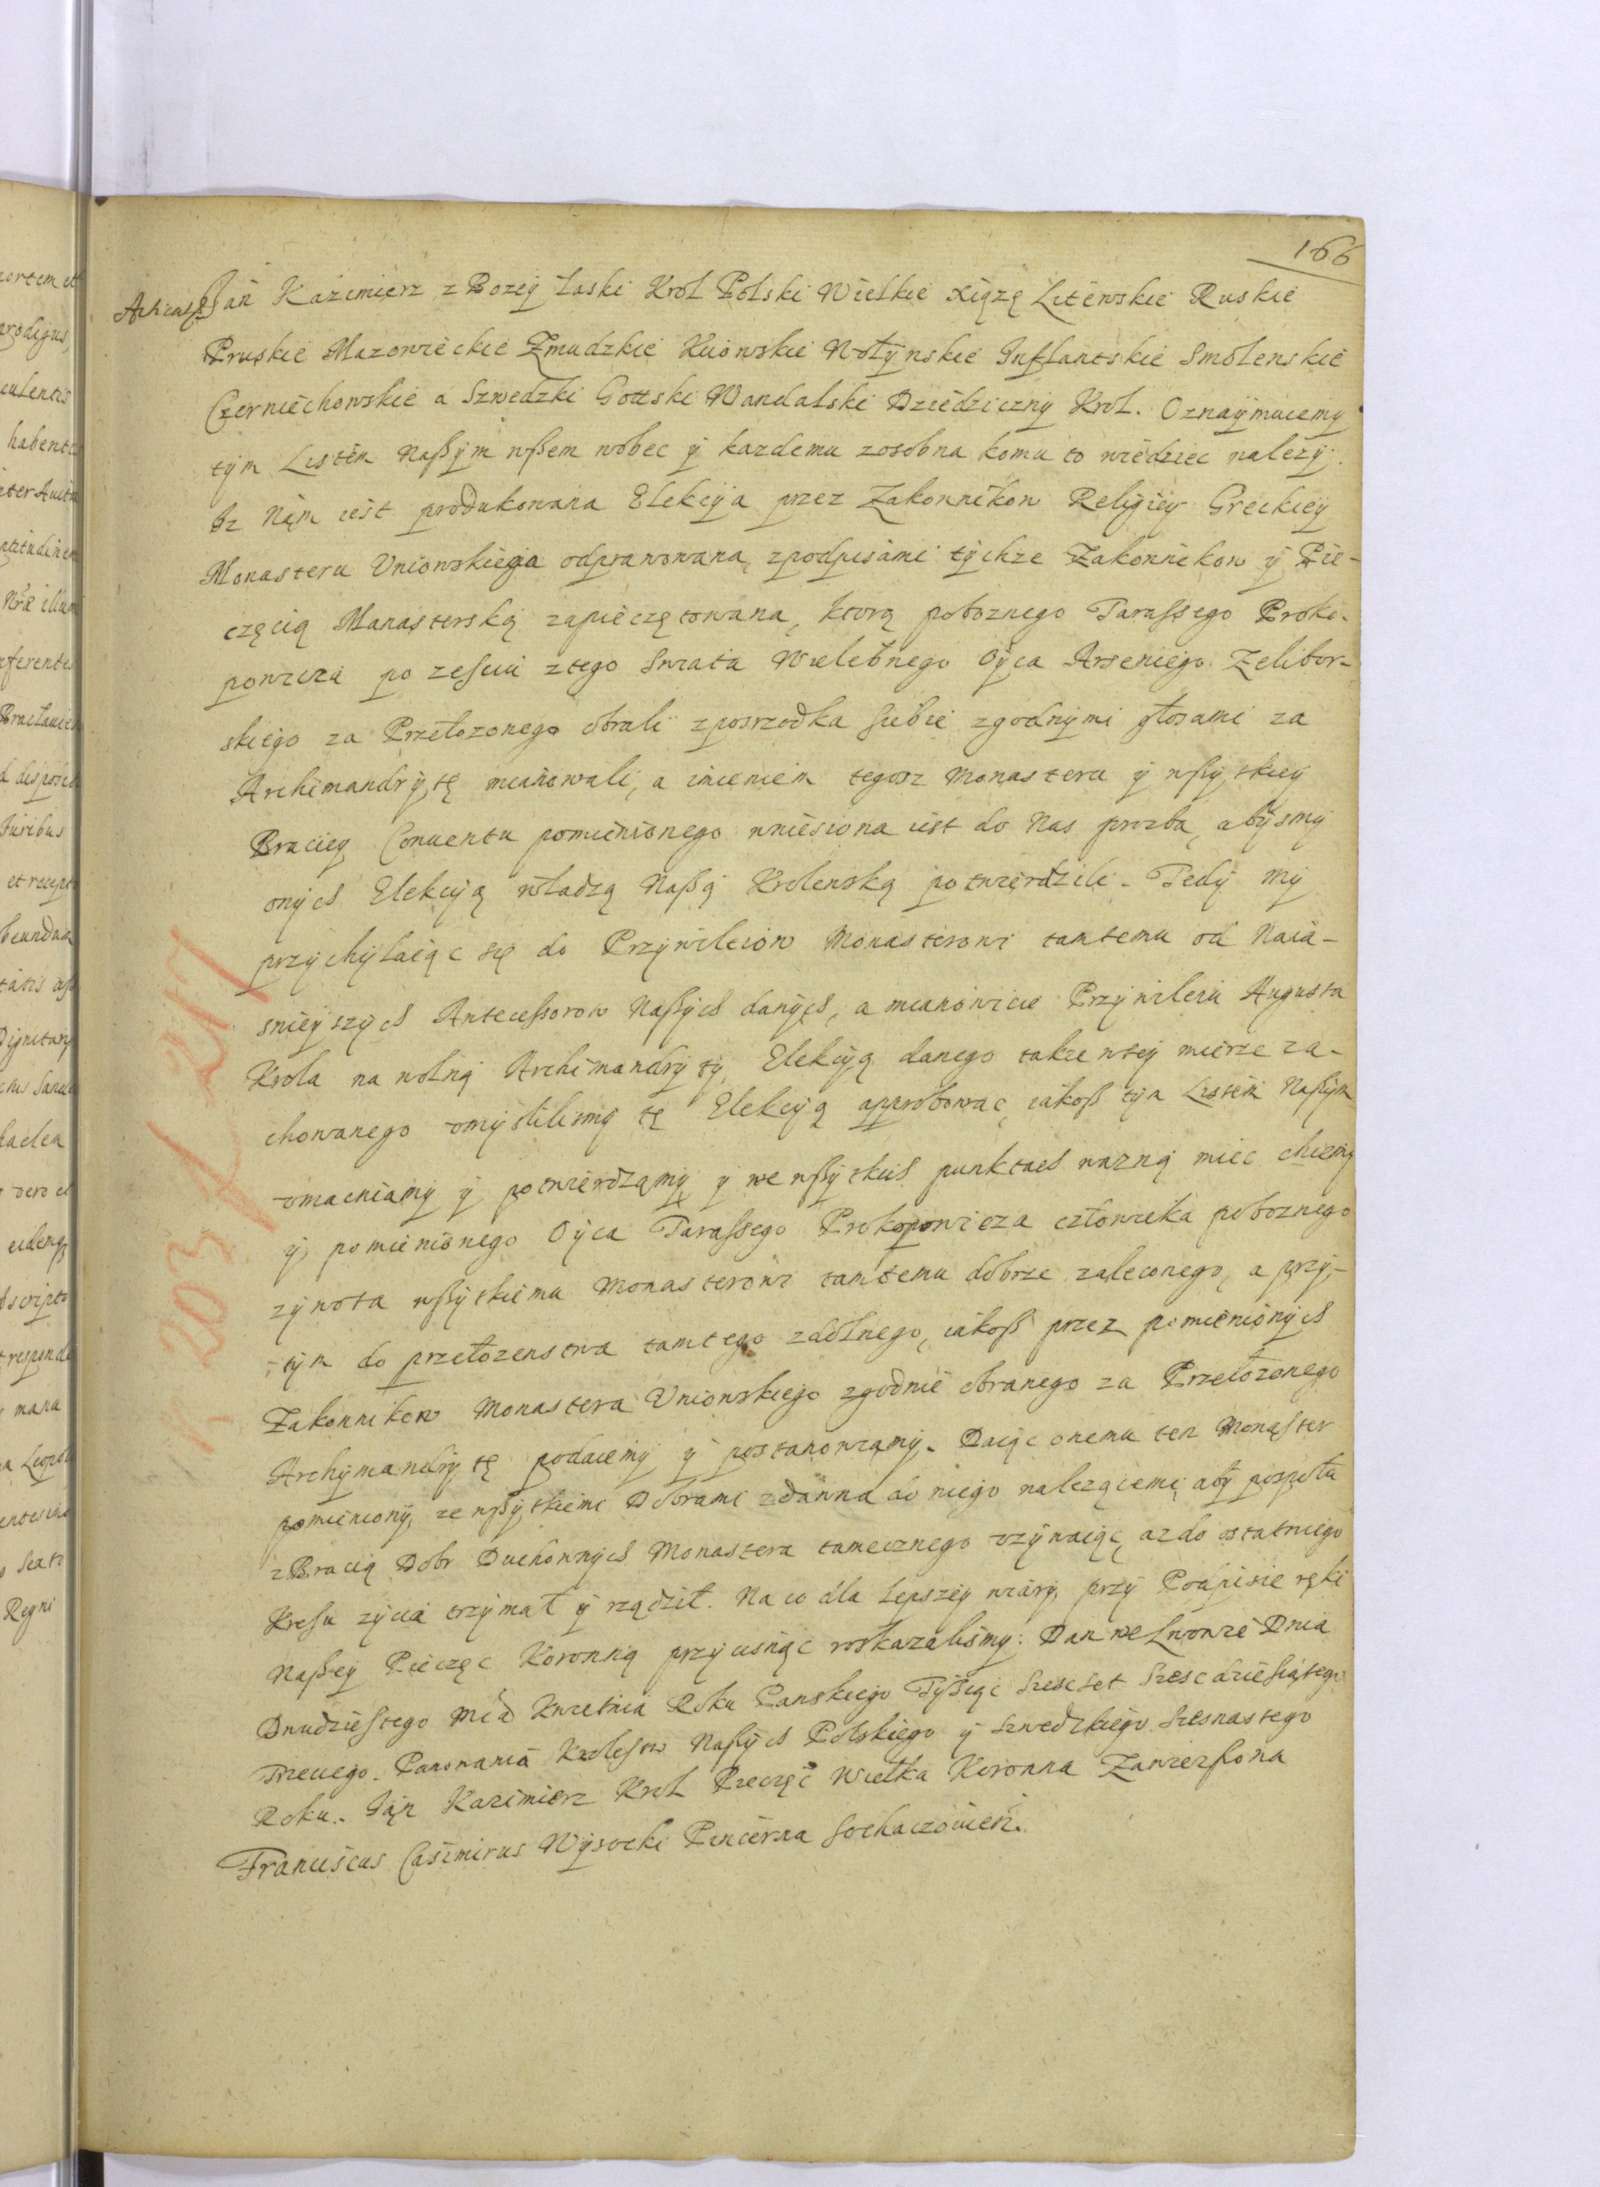 166
Jan Kazimierz z Bozey Łaski Krol Polski Wielkie Xiążę Litewskie Ruskie
Pruskie Mazowieckie Zmudzkie Kiiowskie Wołynskie Inflantskie Smolenskie
Czerniechowskie a Szwedzki Gottski Wandalski Dziedziczny Krol. Oznaymuiemy
tym Listem Naszym wszem wobec y kazdemu zosobna komu to wiedziec nalezy.
Iz Nam iest produkowana Elekcya przez Zakonnikow Religiey Greckiey
Monasteru Uniowskiego odprawowana, zpodpisami tychze Zakonnikow y Pie-
częcią Manasterską zapieczętowana, ktorą poboznego Tarassego Proko-
powicza po zesciu ztego Swiata Wielebnego Oyca Arseniego Zelibor-
skiego za Przełozonego obrali zposrzodka siebie zgodnymi głosami za
Archimandrytę mianowali, a imieniem tegosz Monasteru y wszytkiey
Braciey Conuentu pomienionego wniesiona iest do Nas prozba, abysmy
onych Elekcyą władzą Naszą Krolewską potwierdzili. Tedy My
przychylaiąc się do Przywileiow Monasterowi tamtemu od Naia-
snieyszych Antecessorow Naszych danych, a mianowicie Przywileiu Augusta
Krola na wolną Archimandryty Elekcyą danego takze wtey mierze za-
chowanego umyslilismy tę Elekcyą approbowac, iakosz tym Listem Naszym
umacniamy y potwierdzamy y we wszytkich punktach wazną miec chcemy
y pomienionego Oyca Tarassego Prokopowicza człowieka poboznego
zywota wszytkiemu Monasterowi tamtemu dobrze zaleconego, a przy-
tym do przełozenstwa tamtego zdolnego, iakosz przez pomienionych
Zakonnikow Monastera Uniowskiego zgodnie obranego za Przełozonego
Archymandrytę podaiemy y postanowiamy. Daiąc onemu ten Monaster
pomieniony, ze wszytkiemi Dobrami zdawna do niego nalezącemi, aby pospołu
z Bracią Dobr Duchownych Monastera tamecznego uzywaiąc, az do ostatniego
Kresu zycia trzymał y rządził. Na co dla lepszey wiary, przy Podpisie ręki
Naszey Pieczęc Koronną przycisnąc roskazalismy. Dan we Lwowie Dnia
Dwudziestego Mca Kwietnia Roku Panskiego Tysiąc Szescset Szescdziesiątego
Trzeciego. Panowania Krolestw Naszych Polskiego y Szwedzkiego Szesnastego
Roku. Jan Kazimierz Krol Pieczęc Wielka Koronna Zawieszona
Franciscus Casimirus Wysocki Pincerna Sochaczouien.
203